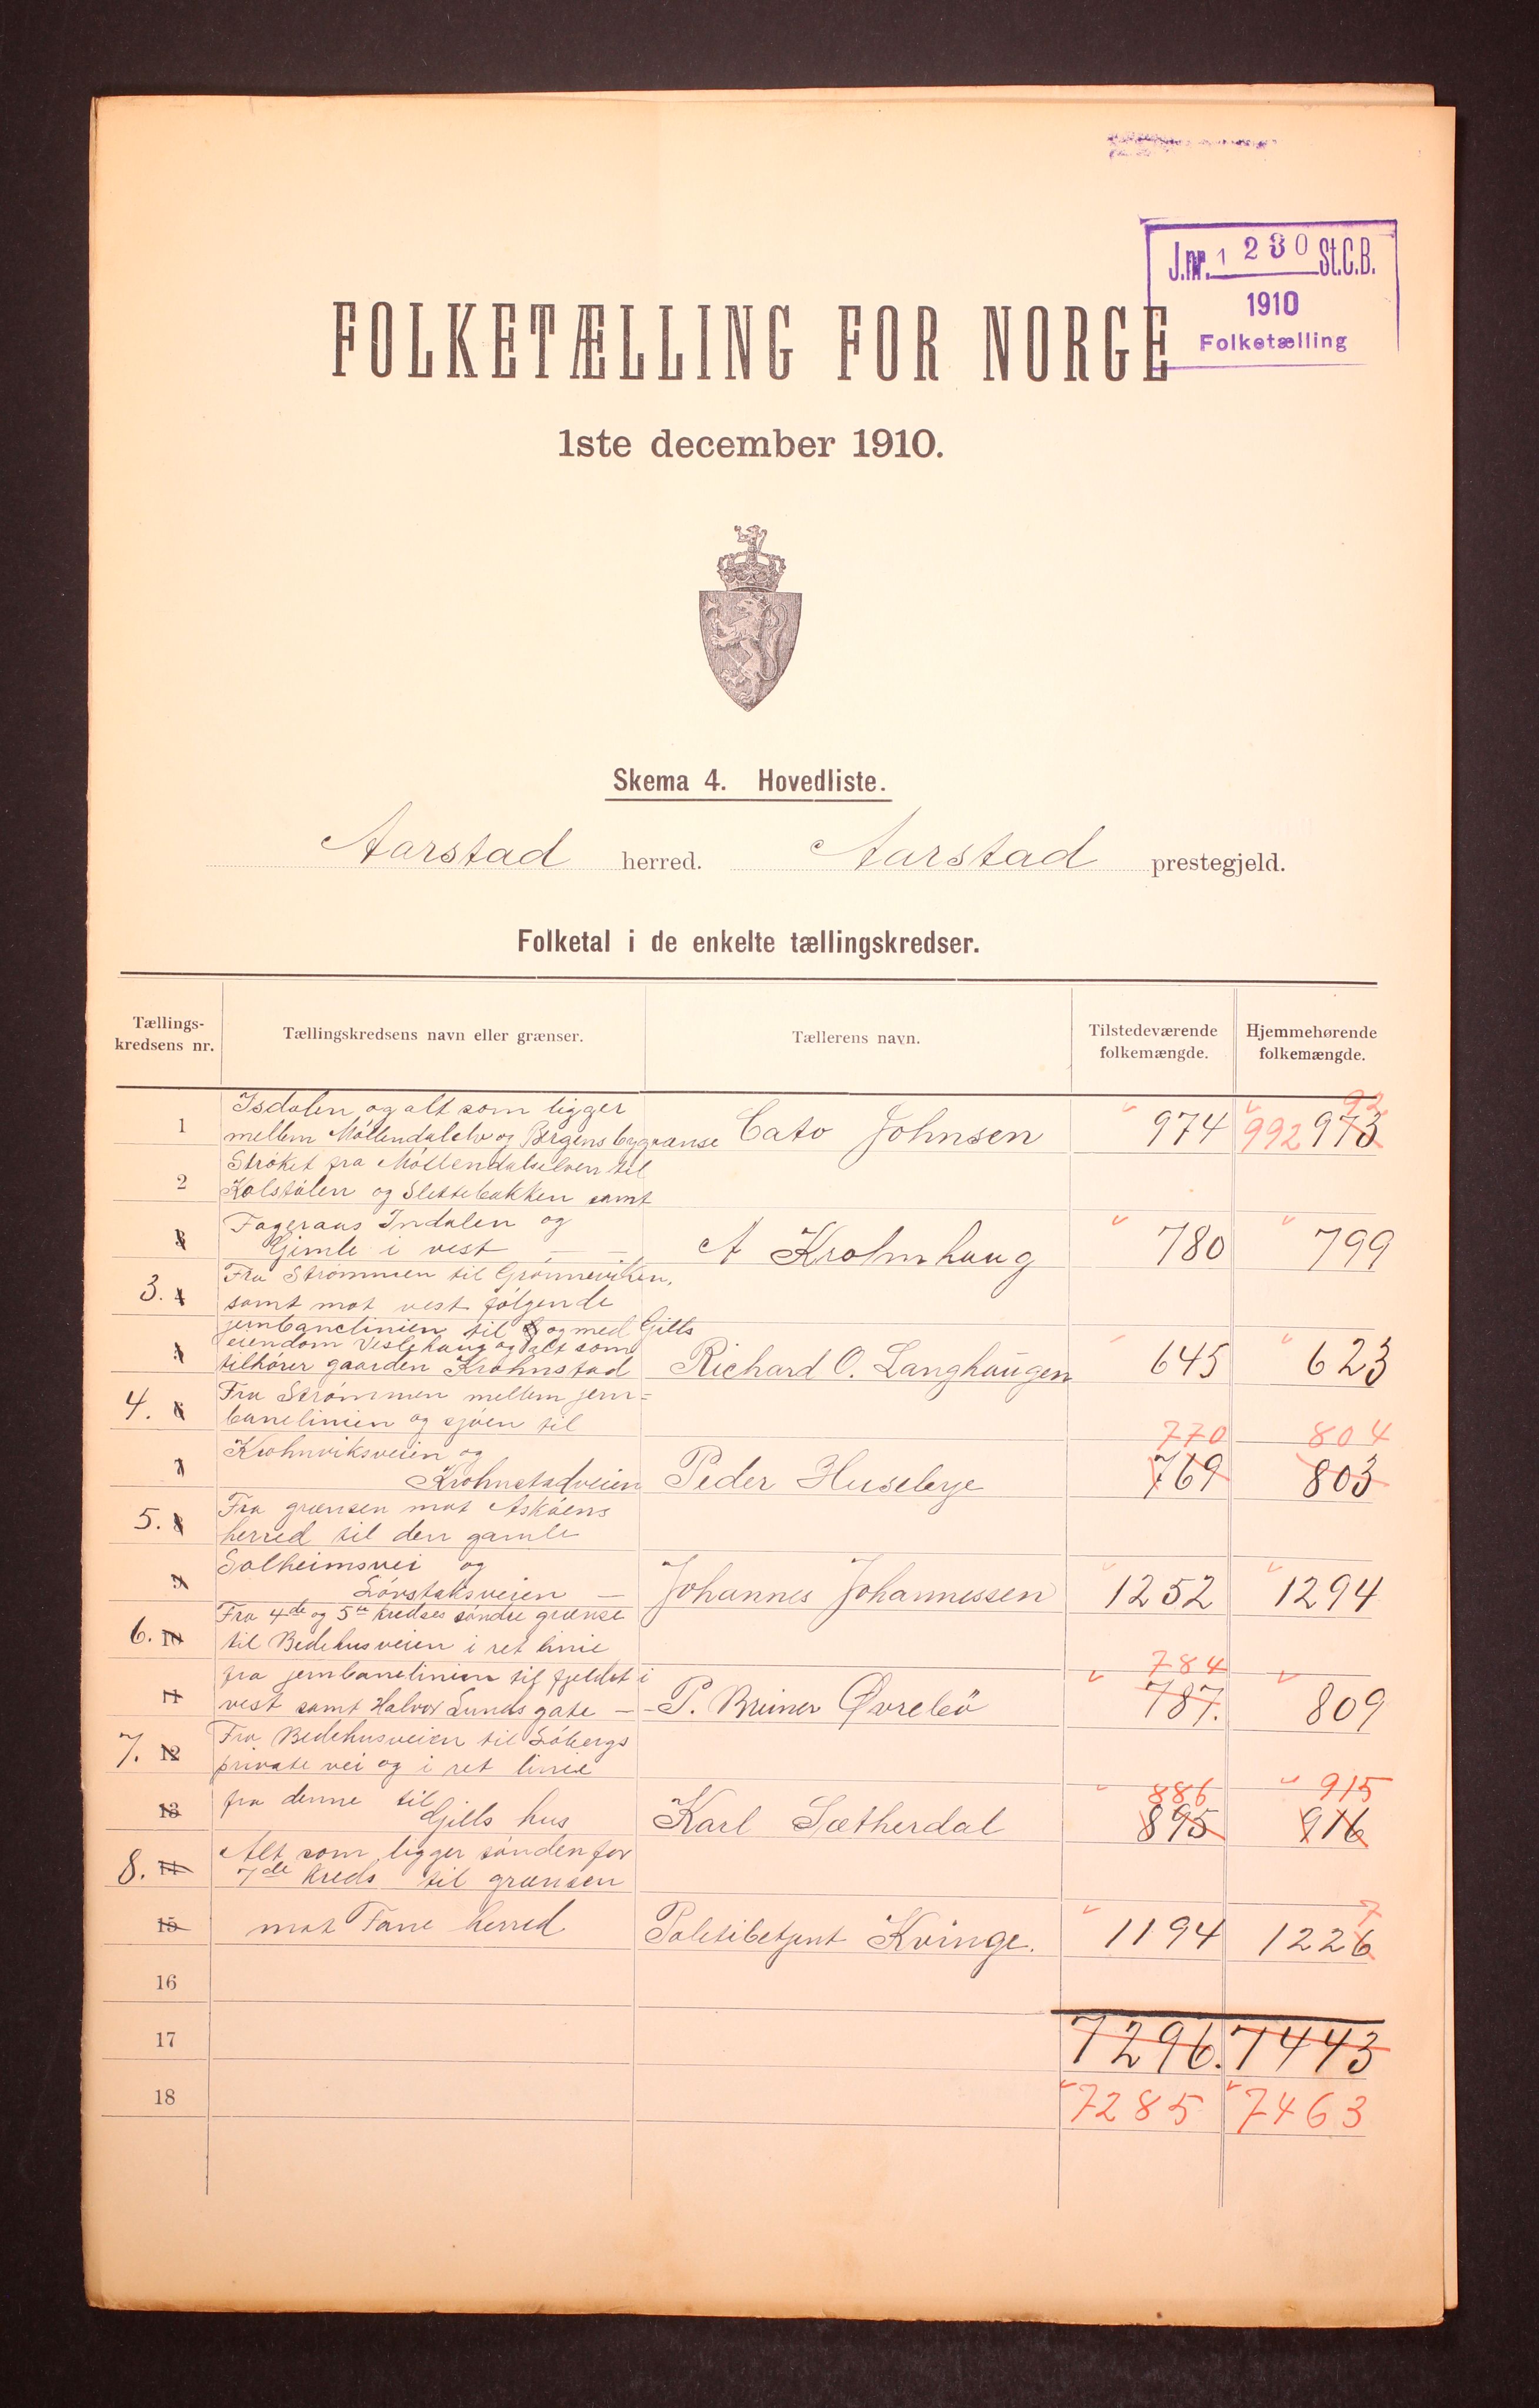 J.nr. 1 230 St.C.B.
1910
Folketælling
FOLKETÆLLING FOR NORGE
1ste december 1910.
Skema 4. Hovedliste.
Aarstad herred. Aarstad prestegjeld.
Folketal i de enkelte tællingskredser.
Tællings-
kredsens nr.
Tællingskredsens navn eller grænser.
Tællerens navn.
Tilstedeværende
folkemængde.
Hjemmehørende
folkemængde.
1 Isdalen og alt som ligger
mellem Möllendalelv og Bergens bygrænse Cato Johnsen 974 992 973 92
2 Ströket fra Möllendalselven til
Kolstölen og Slettebakken samt
3 Fageraas Indalen og
Gimle i vest — — A Krohnhaug 780 799
3. 4 Fra Strömmen til Grönneviken,
samt mot vest følgende
jernbanelinien til og med Gills
5 eiendom Veslehaug og alt som
tilhörer gaarden Krohnstad Richard O. Langhaugen 645 623
4. 6 Fra Strömmen mellem jern=
banelinien og sjöen til
770 804
7 Krohnviksveien og
Krohnstadveien Peder Husebye 769 803
5. 8 Fra grænsen mot Asköens
herred til den gamle
9 Solheimsvei og
Lövstaksveien — Johannes Johannessen 1252 1294
6. 10 Fra 4de og 5te kredses söndre grænse
til Bedehusveien i ret linie
784
11 fra jernbanelinien til fjeldet i
vest samt Halvor Lunds gate — P. Breiner Øvrebö 787. 809
7. 12 Fra Bedehusveien til Löbergs
private vei og i ret linie
886 915
13 fra denne til
Gills hus Karl Sætherdal 895 916
8. 14 Alt som ligger sönden for
7de kreds til grænsen
7
15 mot Fane herred Politibetjent Kvinge. 1194 1226
16
17 7296. 7443
18 7285 7463